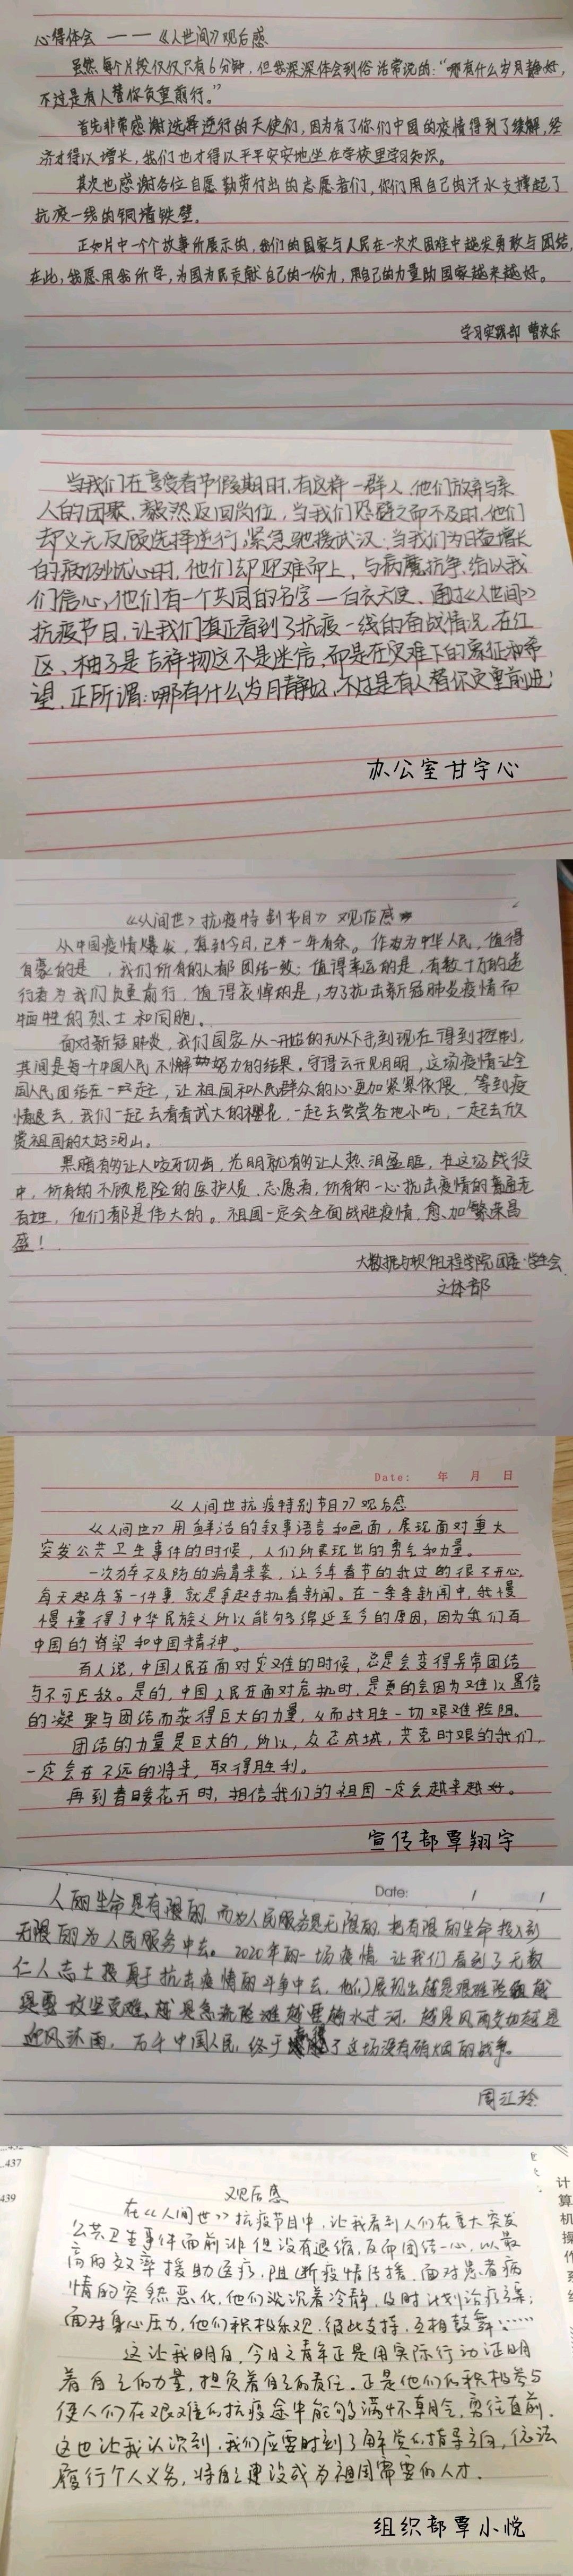 心得体会 —— 《人世间》观后感
虽然每个片段仅仅只有6分钟，但我深深体会到俗话常说的：“哪有什么岁月静好，
不过是有人替你负重前行。”
首先非常感谢选择逆行的天使们，因为有了你们中国的疫情得到了缓解，经
济才得以增长，我们也才得以平平安安地坐在学校里学习知识。
其次也感谢各位自愿勤劳付出的志愿者们，你们用自己的汗水支撑起了
抗疫一线的铜墙铁壁。
正如片中一个个故事所展示的，我们的国家与人民在一次次困难中越发勇敢与团结，
在此，我愿用我所学，为国为民贡献自己的一份力，用自己的力量助国家越来越好。
学习实践部 曹欢乐
当我们在享受春节假期时，有这样一群人，他们放弃与亲
人的团聚，毅然返回岗位，当我们恐避之而不及时，他们
却义无反顾选择逆行，紧急驰援武汉，当我们为日益增长
的病例忧心时，他们却迎难而上，与病魔抗争，给以我
们信心，他们有一个共同的名字—白衣天使、通过《人世间》
抗疫节目，让我们真正看到了抗疫一线的奋战情况，在红
区、柚子是吉祥物这不是迷信，而是在灾难下的象征和希
望，正所谓：哪有什么岁月静好，不过是有人替你负重前进
办公室甘宇心
《人间世》抗疫特别节目》观后感
从中国疫情爆发，直到今日，已半一年有余。作为为中华人民，值得
自豪的是，我们所有的人都团结一致；值得幸运的是，有数十万的逆
行者为我们负重前行，值得哀悼的是，为了抗击新冠肺炎疫情而
牺牲的烈士和同胞。
面对新冠肺炎，我们国家从一开始的无从下手到现在得到控制，
共同是每一个中国人民不懈努力的结果。守得云开见月明，这场疫情让全
国人民团结在一起，让祖国和人民群众的心更加紧紧依偎，等到疫
情退去，我们一起去看看武大的樱花，一起去尝尝各地小吃，一起去欣
赏祖国的大好河山。
黑暗有多让人咬牙切齿，光明就有多让人热泪盈眶，在这场战役
中，所有的不顾危险的医护人员，志愿者，所有的一心抗击疫情的普通老
百姓，他们都是伟大的。祖国一定会全面战胜疫情，愈加繁荣昌
盛！
大数据与软件工程学院团委·学生会
文体部
Date: 年 月 日
《人间世抗疫特别节目》观后感
《人间世》用鲜活的叙事语言和画面，展现面对重大
突发公共卫生事件的时候，人们所展现出的勇气和力量。
一次猝不及防的病毒来袭，让今年春节的我过的很不开心，
每天起床第一件事，就是拿起手机看新闻。在一条条新闻中，我慢
慢懂得了中华民族之所以能够绵延至今的原因，因为我们有
中国的脊梁和中国精神。
有人说，中国人民在面对灾难的时候，总是会变得异常团结
与不可匹敌。是的，中国人民在面对危机时，是真的会因为难以置信
的凝聚与团结而获得巨大的力量，从而战胜一切艰难险阻。
团结的力量是巨大的，所以，众志成城，共克时艰的我们，
一定会在不远的将来，取得胜利。
再到春暖花开时，相信我们的祖国一定会越来越好。
宣传部覃翔宇
Date: / /
人的生命是有限的，而为人民服务是无限的，把有限的生命投入到
无限的为人民服务中去。2020年的一场疫情，让我们看到了无数
仁人志士投身于抗击疫情的斗争中去，他们展现出越是艰难险阻越
是要攻坚克难，越是急流险滩越要趟水过河，越是风雨交加越是
迎风沐雨，万千中国人民，终于了这场没有硝烟的战争。
周江玲
..437
439
计
算
机
操
作
系
观后感
在《人间世》抗疫节目中，让我看到人们在重大突发
公共卫生事件面前非但没有退缩，反而团结一心，以最
高的效率援助医疗，阻断疫情传播，面对患者病
情的突然恶化，他们沉着冷静，及时计划治疗方案；
面对身心压力，他们积极乐观，彼此支持，互相鼓舞……
这让我明白，今日之青年正是用实际行动证明
着自己的力量，担负着自己的责任。正是他们的积极参与
使人们在艰难的抗疫途中能够满怀朝气，勇往直前。
这也让我认识到，我们应要时刻了解党的指导方向，依法
履行个人义务，将自己建设成为祖国需要的人才。
组织部覃小悦